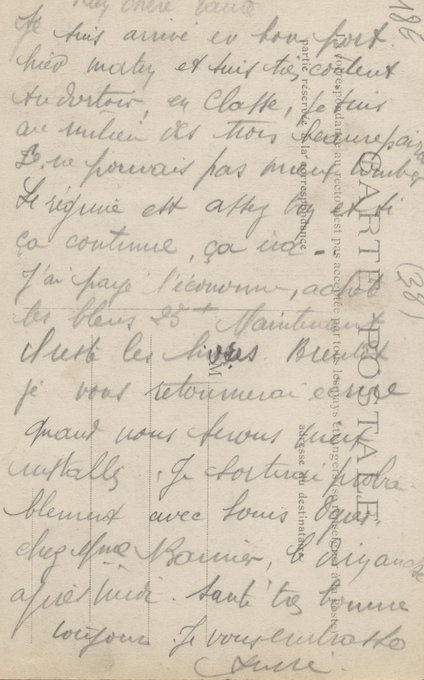 chère tante
Je suis arrivé en bon port
hier matin et suis très content
Au dortoir, en Classe, je suis
au milieu des trois Beaurepaire
Je ne pouvais pas mieux tomber
Le régime est assez bon et si
ça continue, ça ira.
J'ai payé l'économe, acheté
les bleus 25 Maintenant
reste les livres Bientôt
je vous retournerai
quand nous serons mieux
installés. Je sortirai proba
blement avec Louis
chez Mme le dimanche
après midi. Santé très bonne
toujours Je vous embrasse
186
(38)
CARTE POSTALE
La correspondance au recto n'est pas acceptée par tous les pays étrangers (se renseigner à la Poste)
partie réservée à la correspondance
adresse du destinataire
M